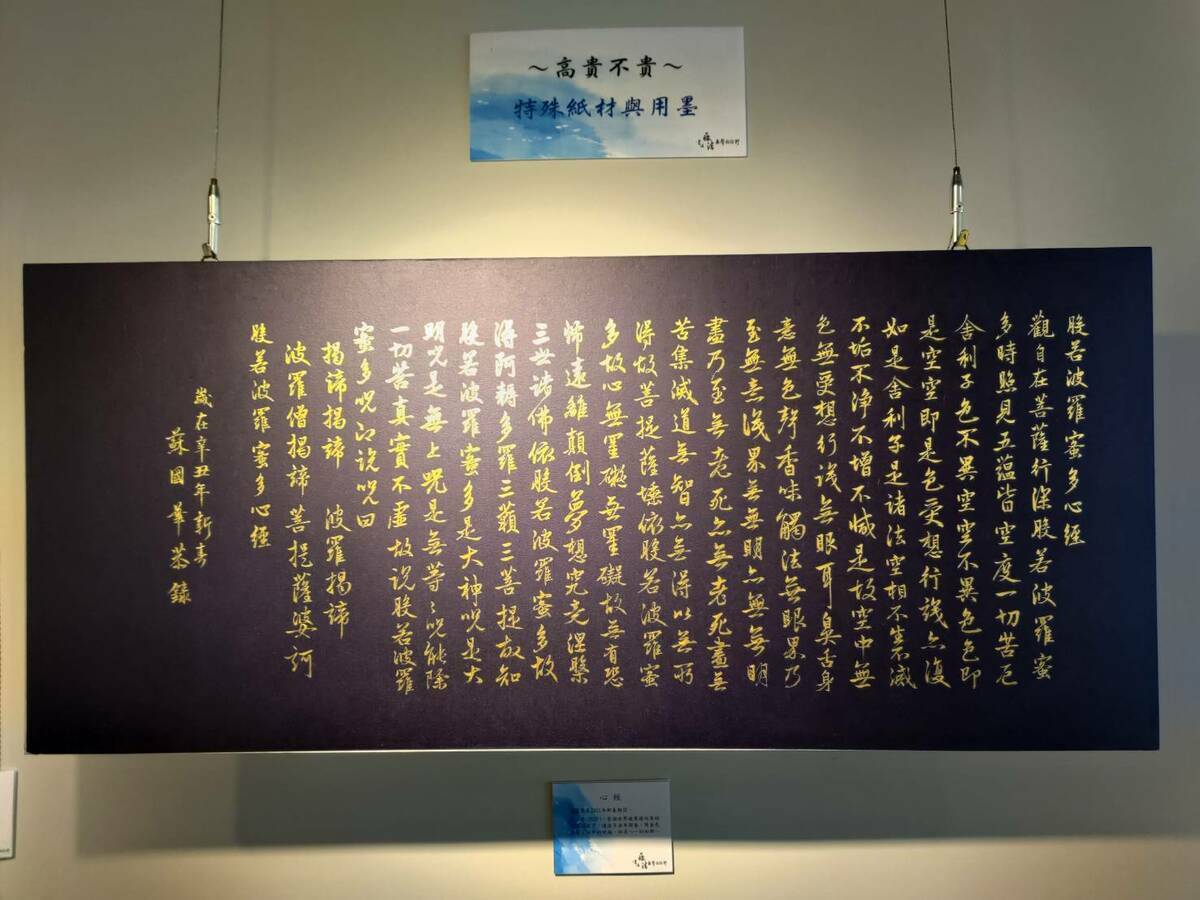 ～高貴不貴～
特殊紙材與用墨
般若波羅蜜多心經
觀自在菩薩行深般若波羅蜜
多時照見五蘊皆空度一切苦厄
舍利子色不異空空不異色色即
是空空即是色受想行識亦復
如是舍利子是諸法空相不生不滅
不垢不淨不增不減是故空中無
色無受想行識無眼耳鼻舌身
意無色聲香味觸法無眼界乃
至無意識界無無明亦無無明
盡乃至無老死亦無老死盡無
苦集滅道無智亦無得以無所
得故菩提薩埵依般若波羅蜜
多故心無罣礙無罣礙故無有恐
怖遠離顛倒夢想究竟涅槃
三世諸佛依般若波羅蜜多故
得阿耨多羅三藐三菩提故知
般若波羅蜜多是大神咒是大
明咒是無上咒是無等々咒能除
一切苦真實不虛故說般若波羅
蜜多咒即說咒曰
揭諦揭諦 波羅揭諦
波羅僧揭諦 菩提薩婆訶
般若波羅蜜多心經
歲在辛丑年新春
蘇國華恭錄
心經